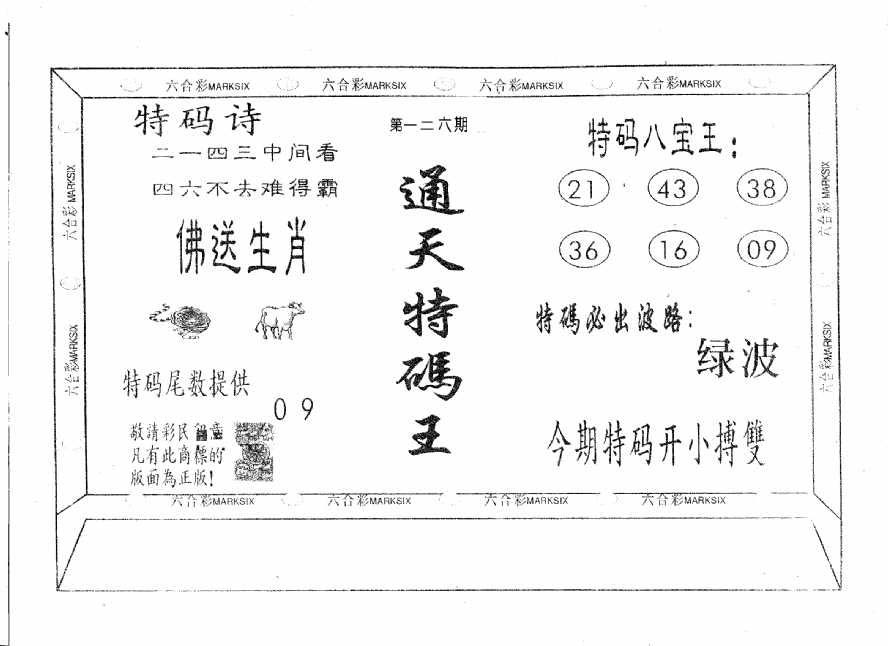 六合彩MARKSIX 六合彩MARKSIX 六合彩MARKSIX 六合彩MARKSIX
特码诗
二一四三中间看
四六不去难得霸
佛送生肖
特码尾数提供
09
敬請彩民留意
凡有此商標的
版面為正版!
第一二六期
通天特碼王
特码八宝王:
21 43 38
36 16 09
特碼必出波路:
绿波
今期特码开小搏雙
六合彩MARKSIX
六合彩MARKSIX
六合彩MARKSIX
六合彩MARKSIX
六合彩MARKSIX 六合彩MARKSIX 六合彩MARKSIX 六合彩MARKSIX